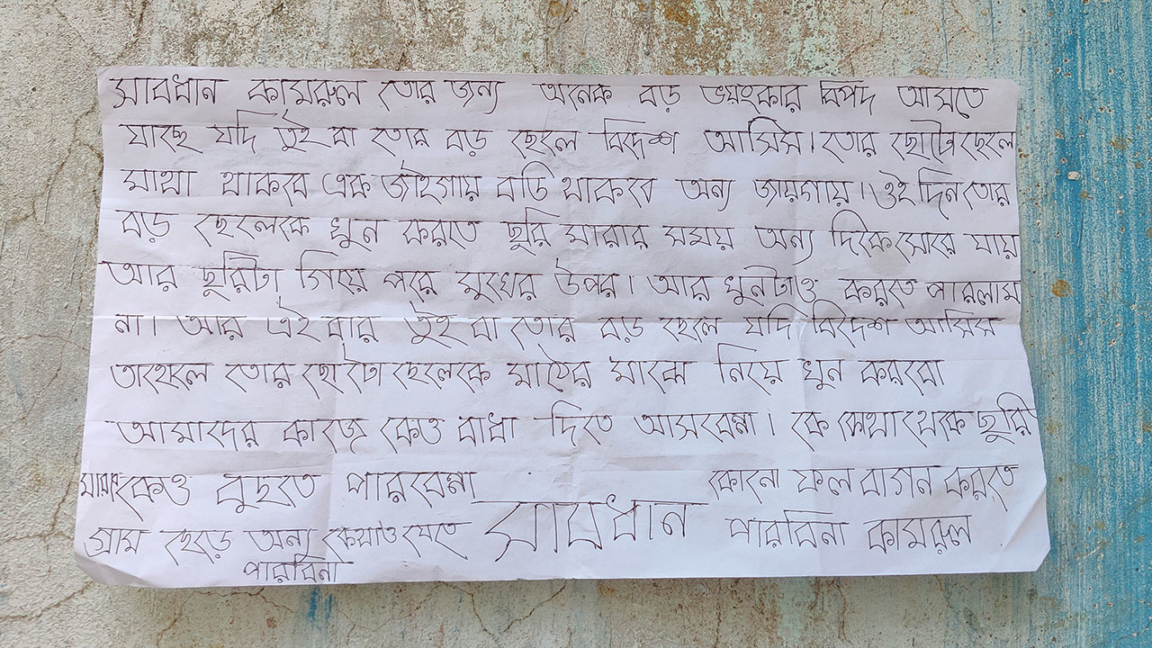 সাবধান কামরুল তোর জন্য অনেক বড় ভয়ংকার বিপদ আসতে
যাছে যদি তুই বা তোর বড় ছেলে বিদেশ আসিস। তোর ছোটো ছেলে
মাথা থাকবে এক জাইগায় বডি থাকবে অন্য জায়গায়। ওই দিন তোর
বড় ছেলেকে খুন করতে ছুরি মারার সময় অন্য দিকে সোরে যায়
আর ছুরিটা গিয়ে পরে মুখের উপর। আর খুনটাও করতে পারলাম
না। আর এই বার তুই বা তোর বড় ছেলে যদি বিদেশ আসিস
তাহেলে তোর ছোটো ছেলেকে মায়ৈর মাঝে নিয়ে খুন করবো
আমাদের কাজে কেও বাধা দিতে আসবেন্না। কে কোথা থেকে ছুরি
মারছে কেও বুছতে পারবেন্না কোনো ফল বাগান করতে
গ্রাম ছেড়ে অন্য কোথাও যেতে সাবধান পারবিনা কামরুল
পারবিনা